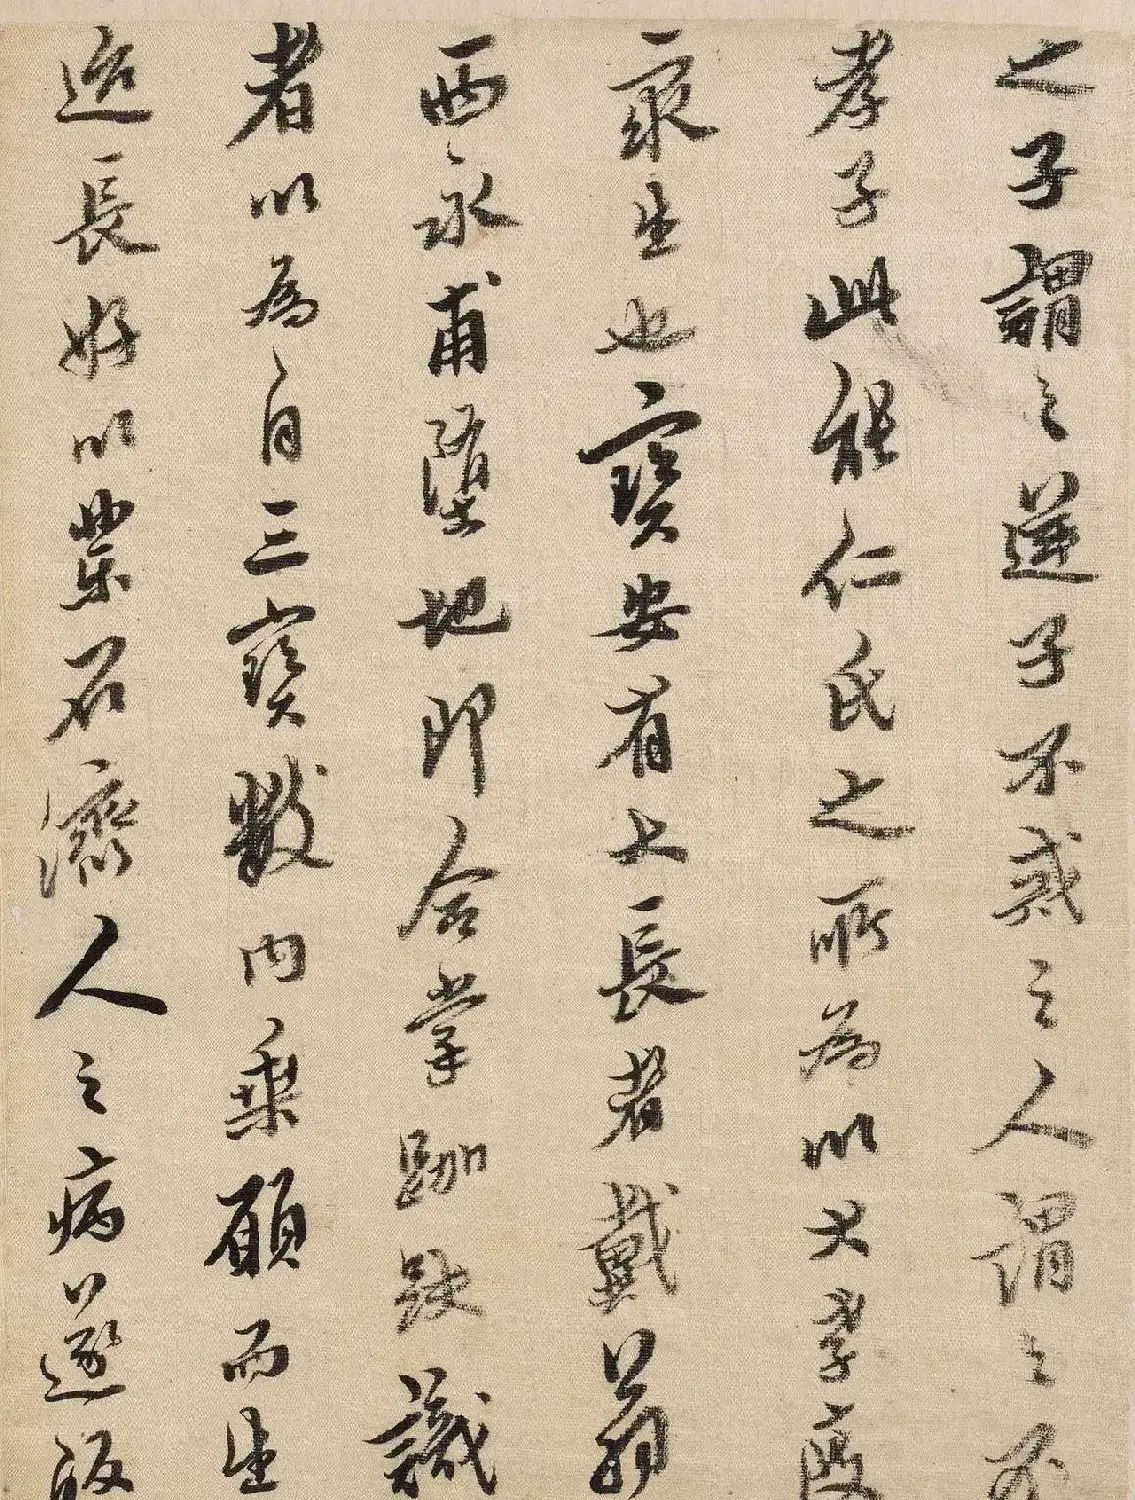 之子謂之逆子不惑之人謂之不
孝子此能仁氏之所為以大孝度
衆生也寶安有上長者戴翁
西永甫墮地即合掌跏趺識
者以為自三寶數內乘願而生
迨長好以藥石濟人之病遂販